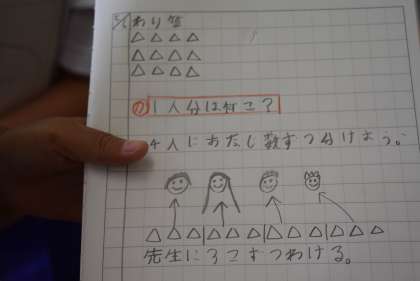 わり算
△△△△
△△△△
△△△△
1人分は何こ?
4人におなじ数ずつ分けよう。
△△△|△△△|△△△|△△△
先生に3こずつわける。